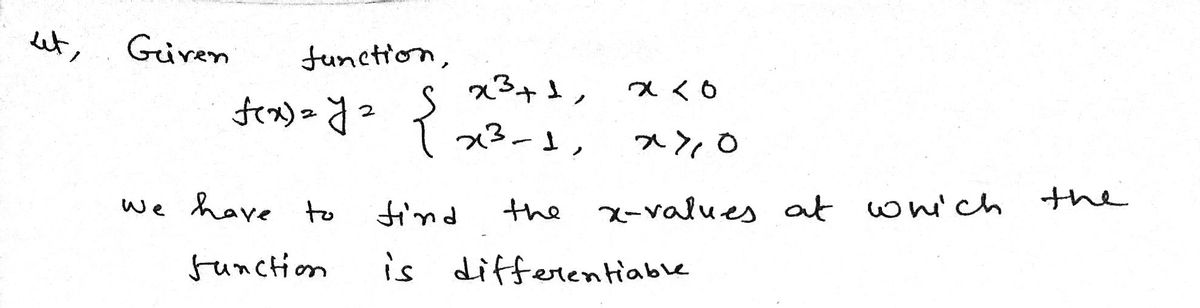 Let, Given function,
f(x) = y = { x³+1, x < 0
x³-1, x ≥ 0
we have to find the x-values at which the
function is differentiable